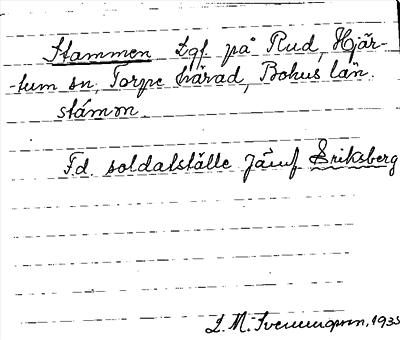 Stammen Lgt på Rud, Hjär-
-tum sn, Torpe härad, Bohus län.
stámən.
F.d. soldatställe jämf Eriksberg
L. M. Svenungsson, 1935